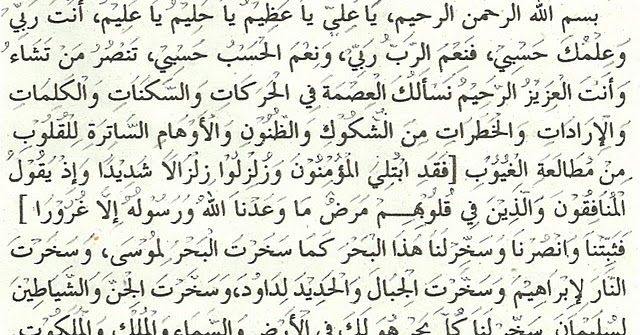 بسم الله الرحمن الرحيم، يَا عَلِيُّ يَا عَظِيْمُ يَا حَلِيْمُ يَا عَلِيْمُ، أَنْتَ رَبِّيْ
وَعِلْمُكَ حَسْبِيْ، فَنِعْمَ الرَّبُّ رَبِّيْ، وَنِعْمَ الْحَسْبُ حَسْبِيْ، تَنْصُرُ مَنْ تَشَاءُ
وَأَنْتَ الْعَزِيْزُ الرَّحِيْمُ نَسْأَلُكَ الْعِصْمَةَ فِي الْحَرَكَاتِ وَالسَّكَنَاتِ وَالْكَلِمَاتِ
وَالْإِرَادَاتِ وَالْخَطَرَاتِ مِنَ الشُّكُوْكِ وَالظُّنُوْنِ وَالْأَوْهَامِ السَّاتِرَةِ لِلْقُلُوْبِ
مِنْ مُطَالَعَةِ الْغُيُوْبِ [فَقَدِ ابْتُلِيَ الْمُؤْمِنُوْنَ وَزُلْزِلُوْا زِلْزَالًا شَدِيْدًا وَإِذْ يَقُوْلُ
الْمُنَافِقُوْنَ وَالَّذِيْنَ فِي قُلُوْبِهِمْ مَرَضٌ مَا وَعَدَنَا اللهُ وَرَسُوْلُهُ إِلَّا غُرُوْرًا ]
فَثَبِّتْنَا وَانْصُرْنَا وَسَخِّرْ لَنَا هٰذَا الْبَحْرَ كَمَا سَخَّرْتَ الْبَحْرَ لِمُوْسَى، وَسَخَّرْتَ
النَّارَ لِإِبْرَاهِيْمَ وَسَخَّرْتَ الْجِبَالَ وَالْحَدِيْدَ لِدَاوُدَ،وَسَخَّرْتَ الْجِنَّ وَالشَّيَاطِيْنَ
لِسُلَيْمَانَ وَسَخِّرْ لَنَا كُلَّ بَحْرٍ هُوَ لَكَ فِي الْأَرْضِ وَالسَّمَاءِ وَالْمُلْكِ وَالْمَلَكُوْتِ